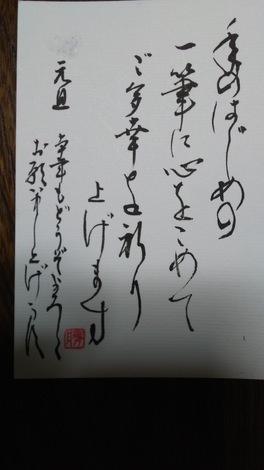 年のはじめの
一筆に心をこめて
ご多幸を祈り
上げます
元旦
本年もどうぞよろしく
お願い申し上げます